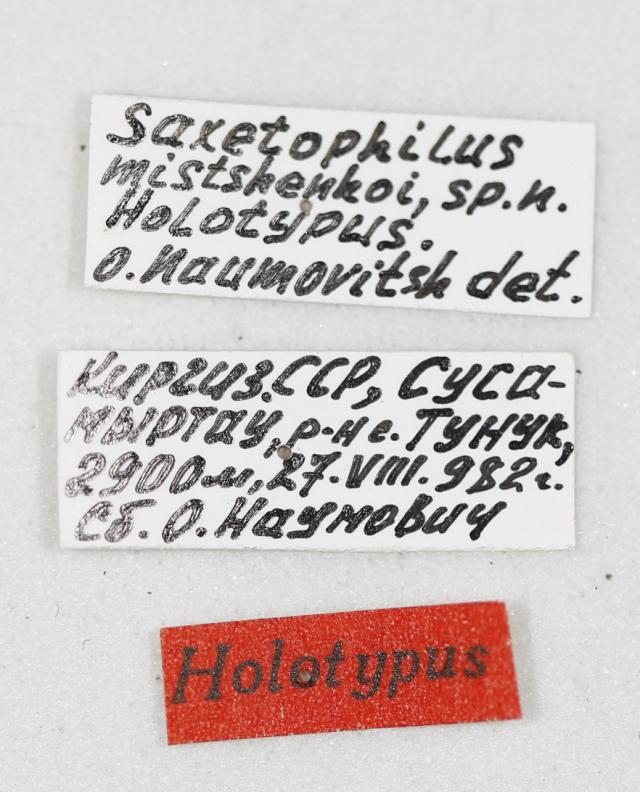 Saxetophilus
mistshenkoi, sp.n.
Holotypus.
O.Naumovitsh det.
Киргиз.ССР, Суса-
мыртау, р-н с.Тунук,
2900м, 27.VIII.982г.
Сб. О.Наумович
Holotypus